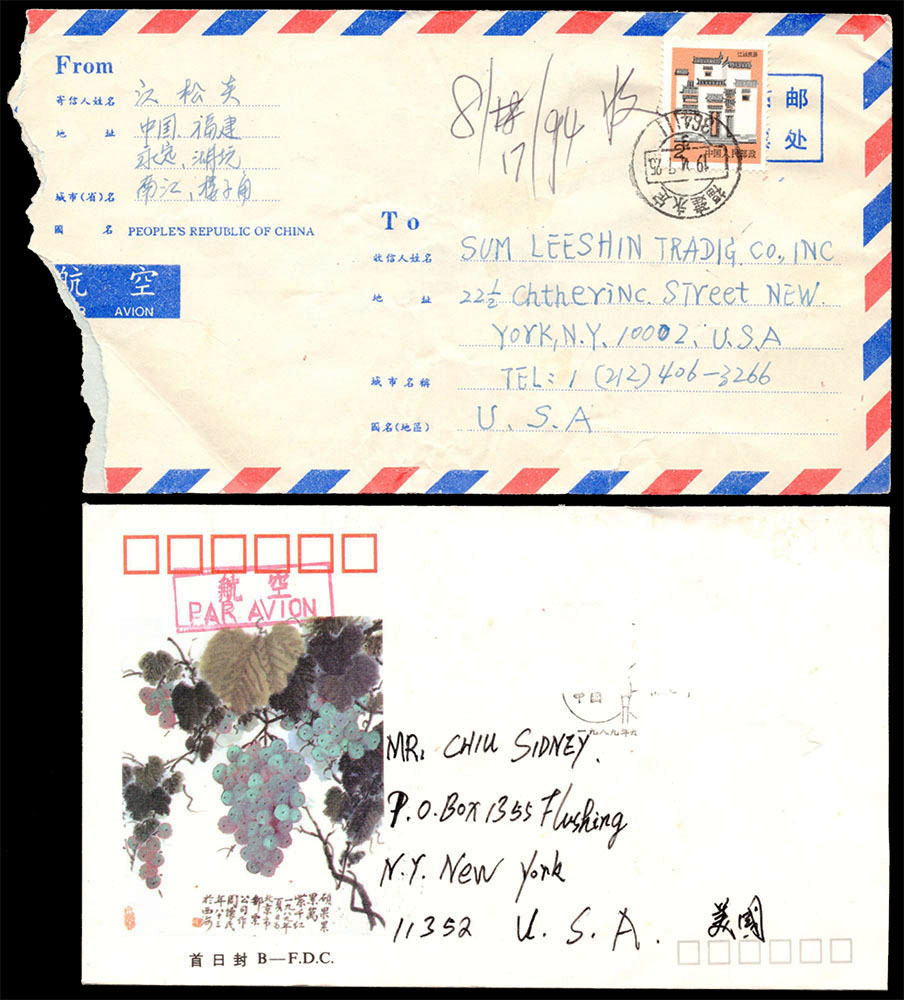 From
寄信人姓名 江松炎
地 址 中国、福建
永定、湖坑
城市(省)名 南江、楼子角
國 名 PEOPLE'S REPUBLIC OF CHINA
航 空
AVION
8/17/94 收
邮
处
中国人民邮政
福建永定
To
收信人姓名 SUM LEESHIN TRADIG CO., INC
地 址 22½ Chtherinc. Street NEW.
YORK, N.Y. 10002. U.S.A
城市名稱 TEL: 1 (212) 406-3266
國名(地區) U.S.A
航 空
PAR AVION
中國
一九八九年
MR. CHIU SIDNEY.
P.O. Box 1355 Flushing
N.Y. New York
11352 U.S.A. 美國
首日封 B—F.D.C.